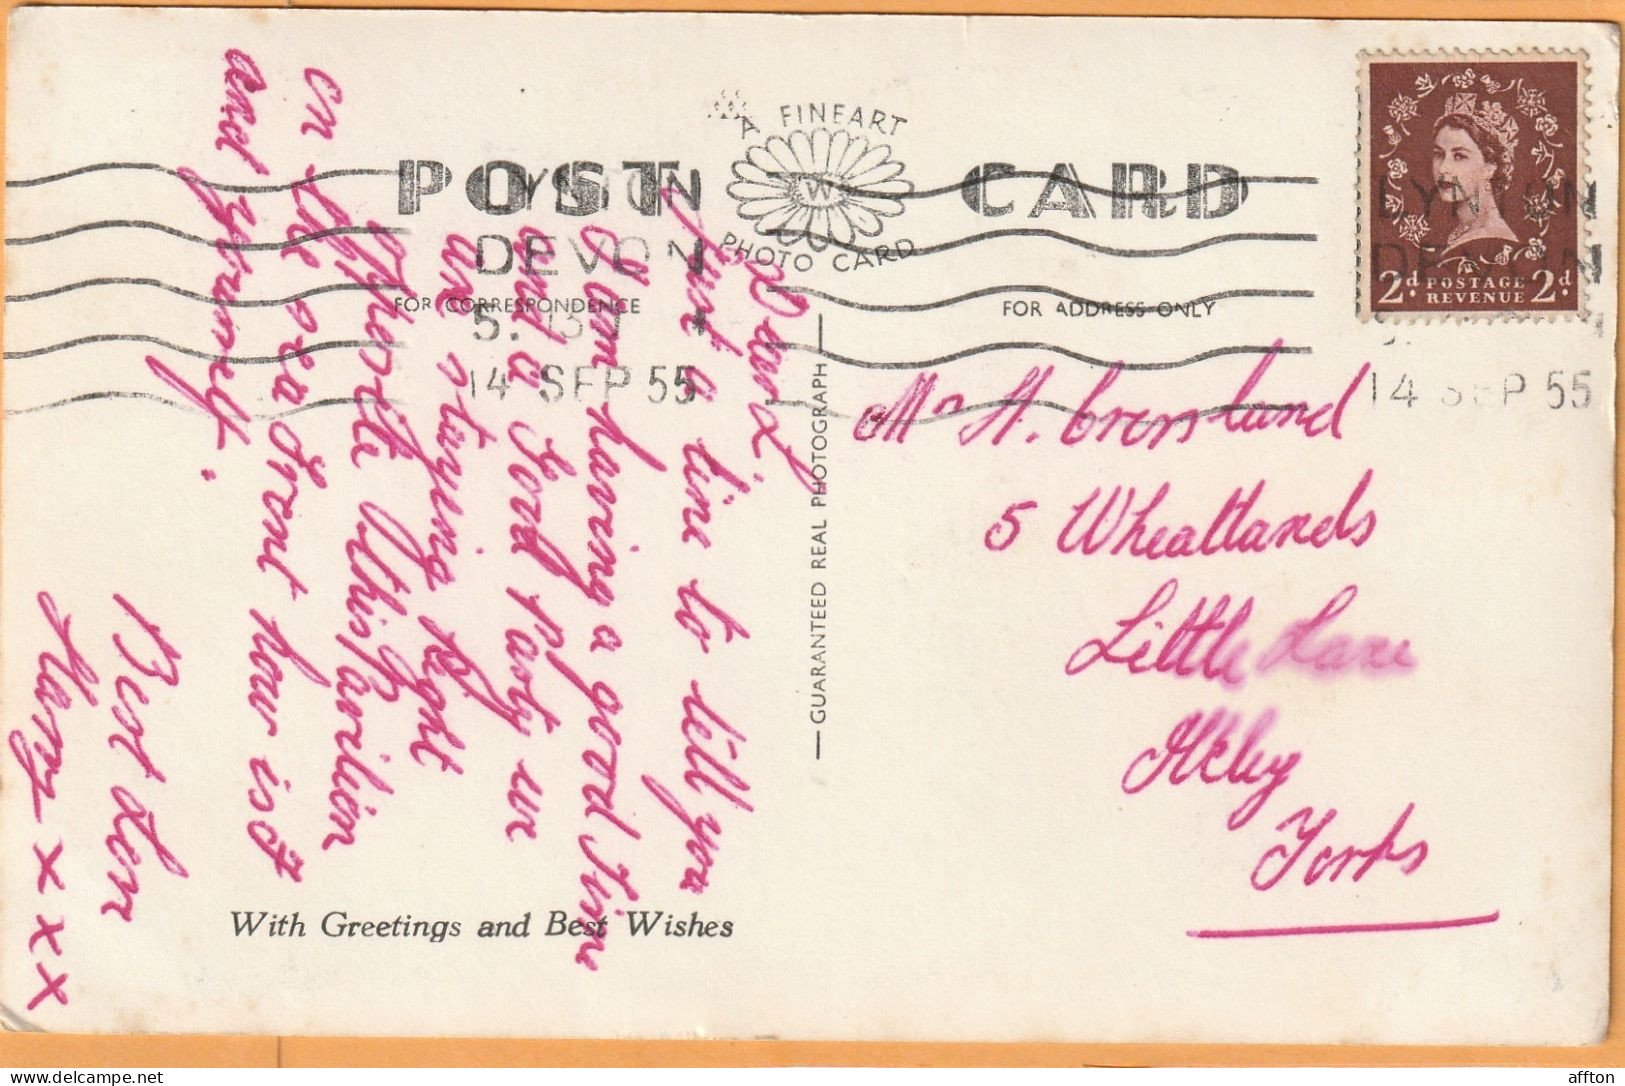 A FINEART
POST CARD
W
PHOTO CARD
FOR CORRESPONDENCE
FOR ADDRESS ONLY
LYNTON
DEVON
14 SEP 55
LYNTON
DEVON
14 SEP 55
2d POSTAGE REVENUE 2d
GUARANTEED REAL PHOTOGRAPH
Just a line to tell you
I am having a good time
and a Good Party we
are staying
opposite
Pavilion
on the sea front how is
and young
Best
Harry x x x
With Greetings and Best Wishes
Mr H. Crossland
5 Wheatlands
Little Lane
Ilkley
Yorks